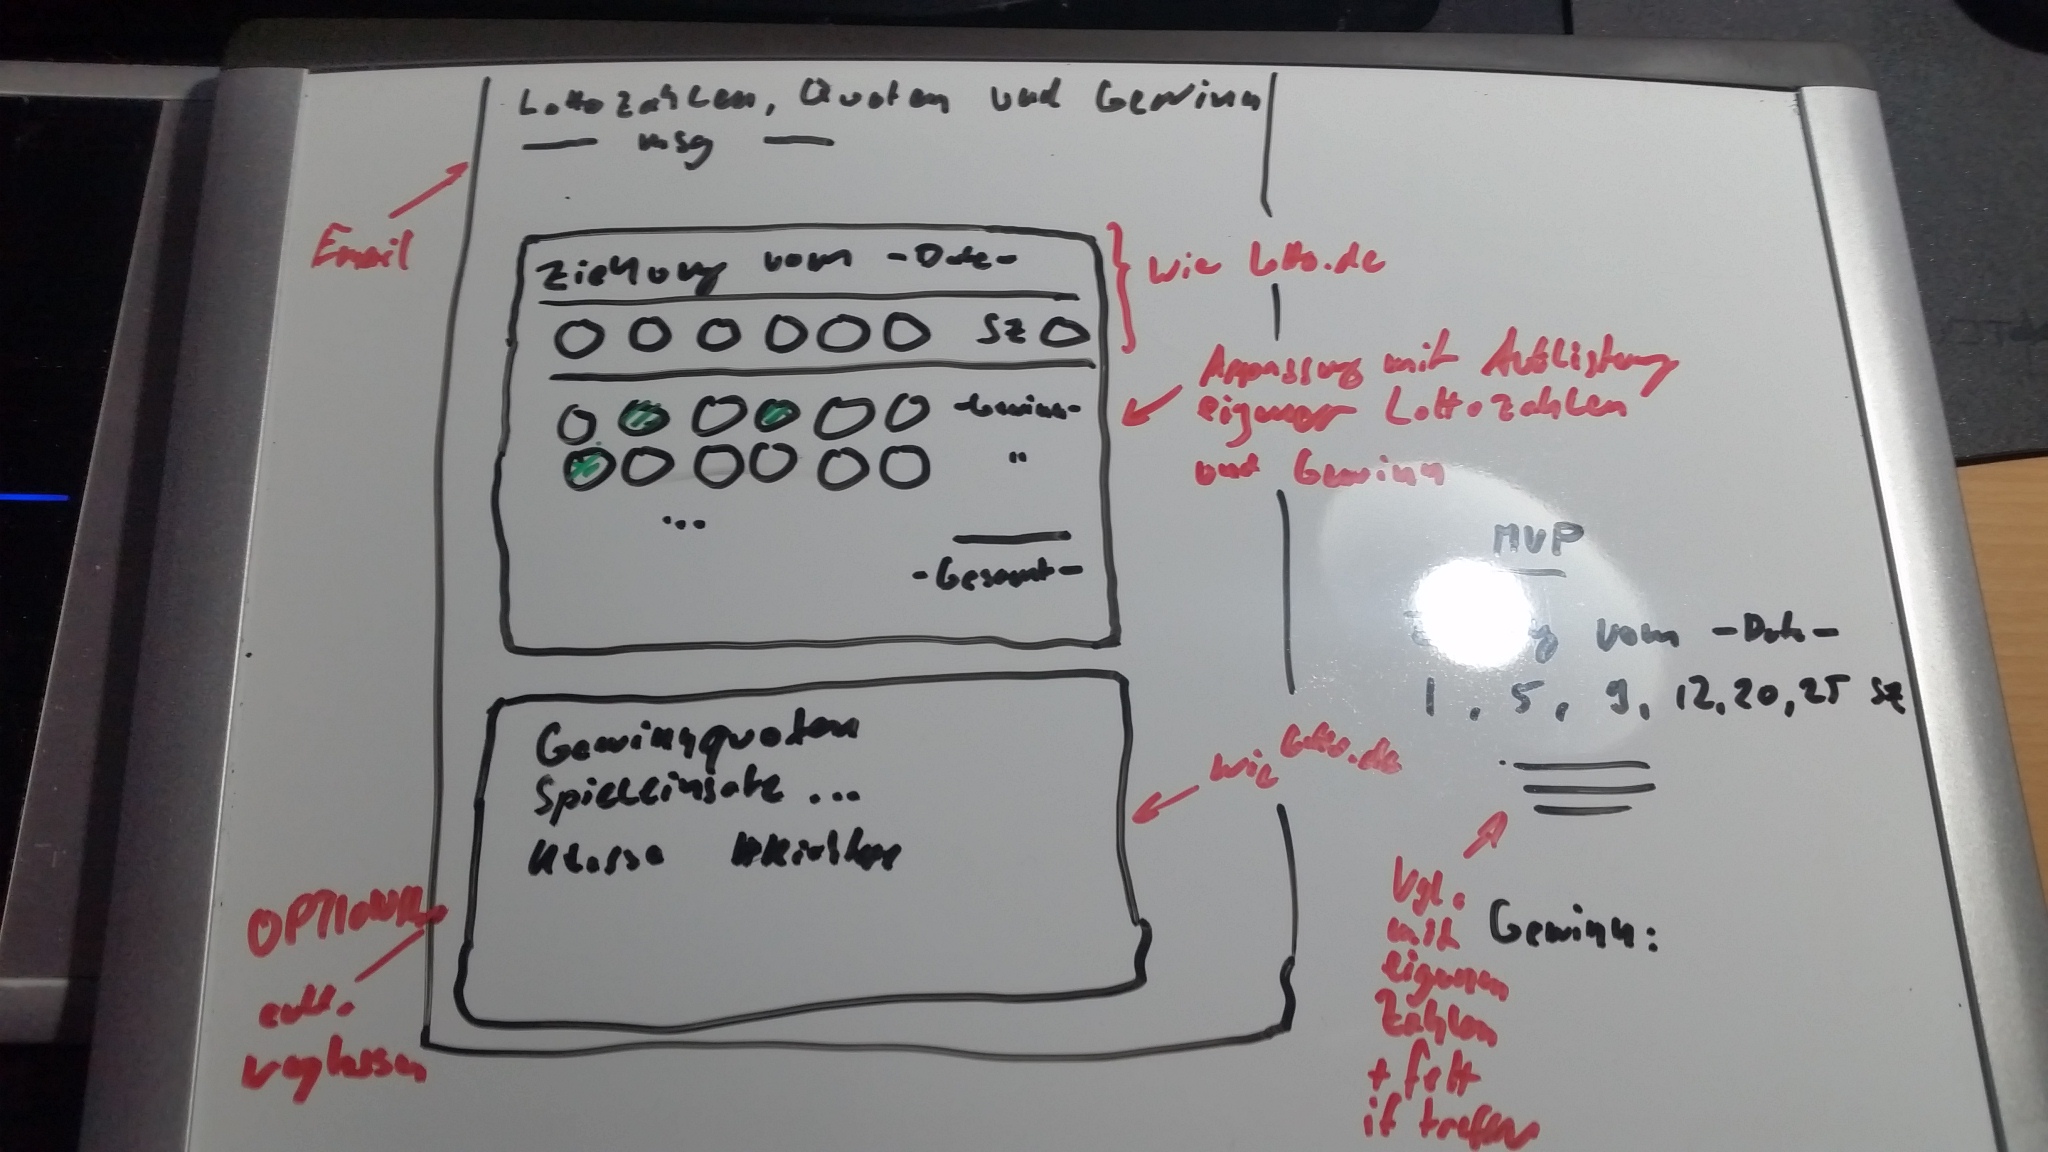 Lottozahlen, Quoten und Gewinn
— msg —
Email
Ziehung vom -Date-
SZ
wie lotto.de
-Gewinn-
"
...
-Gesamt-
Anpassung mit Auflistung
eigener Lottozahlen
und Gewinn
Gewinnquoten
Spieleinsatz ...
Klasse
wie lotto.de
OPTIONAL
evtl.
weglassen
MVP
vom -Date-
1, 5, 9, 12, 20, 25 SZ
Vgl.
mit
eigenen
Zahlen
+ fett
if treffer
Gewinn: